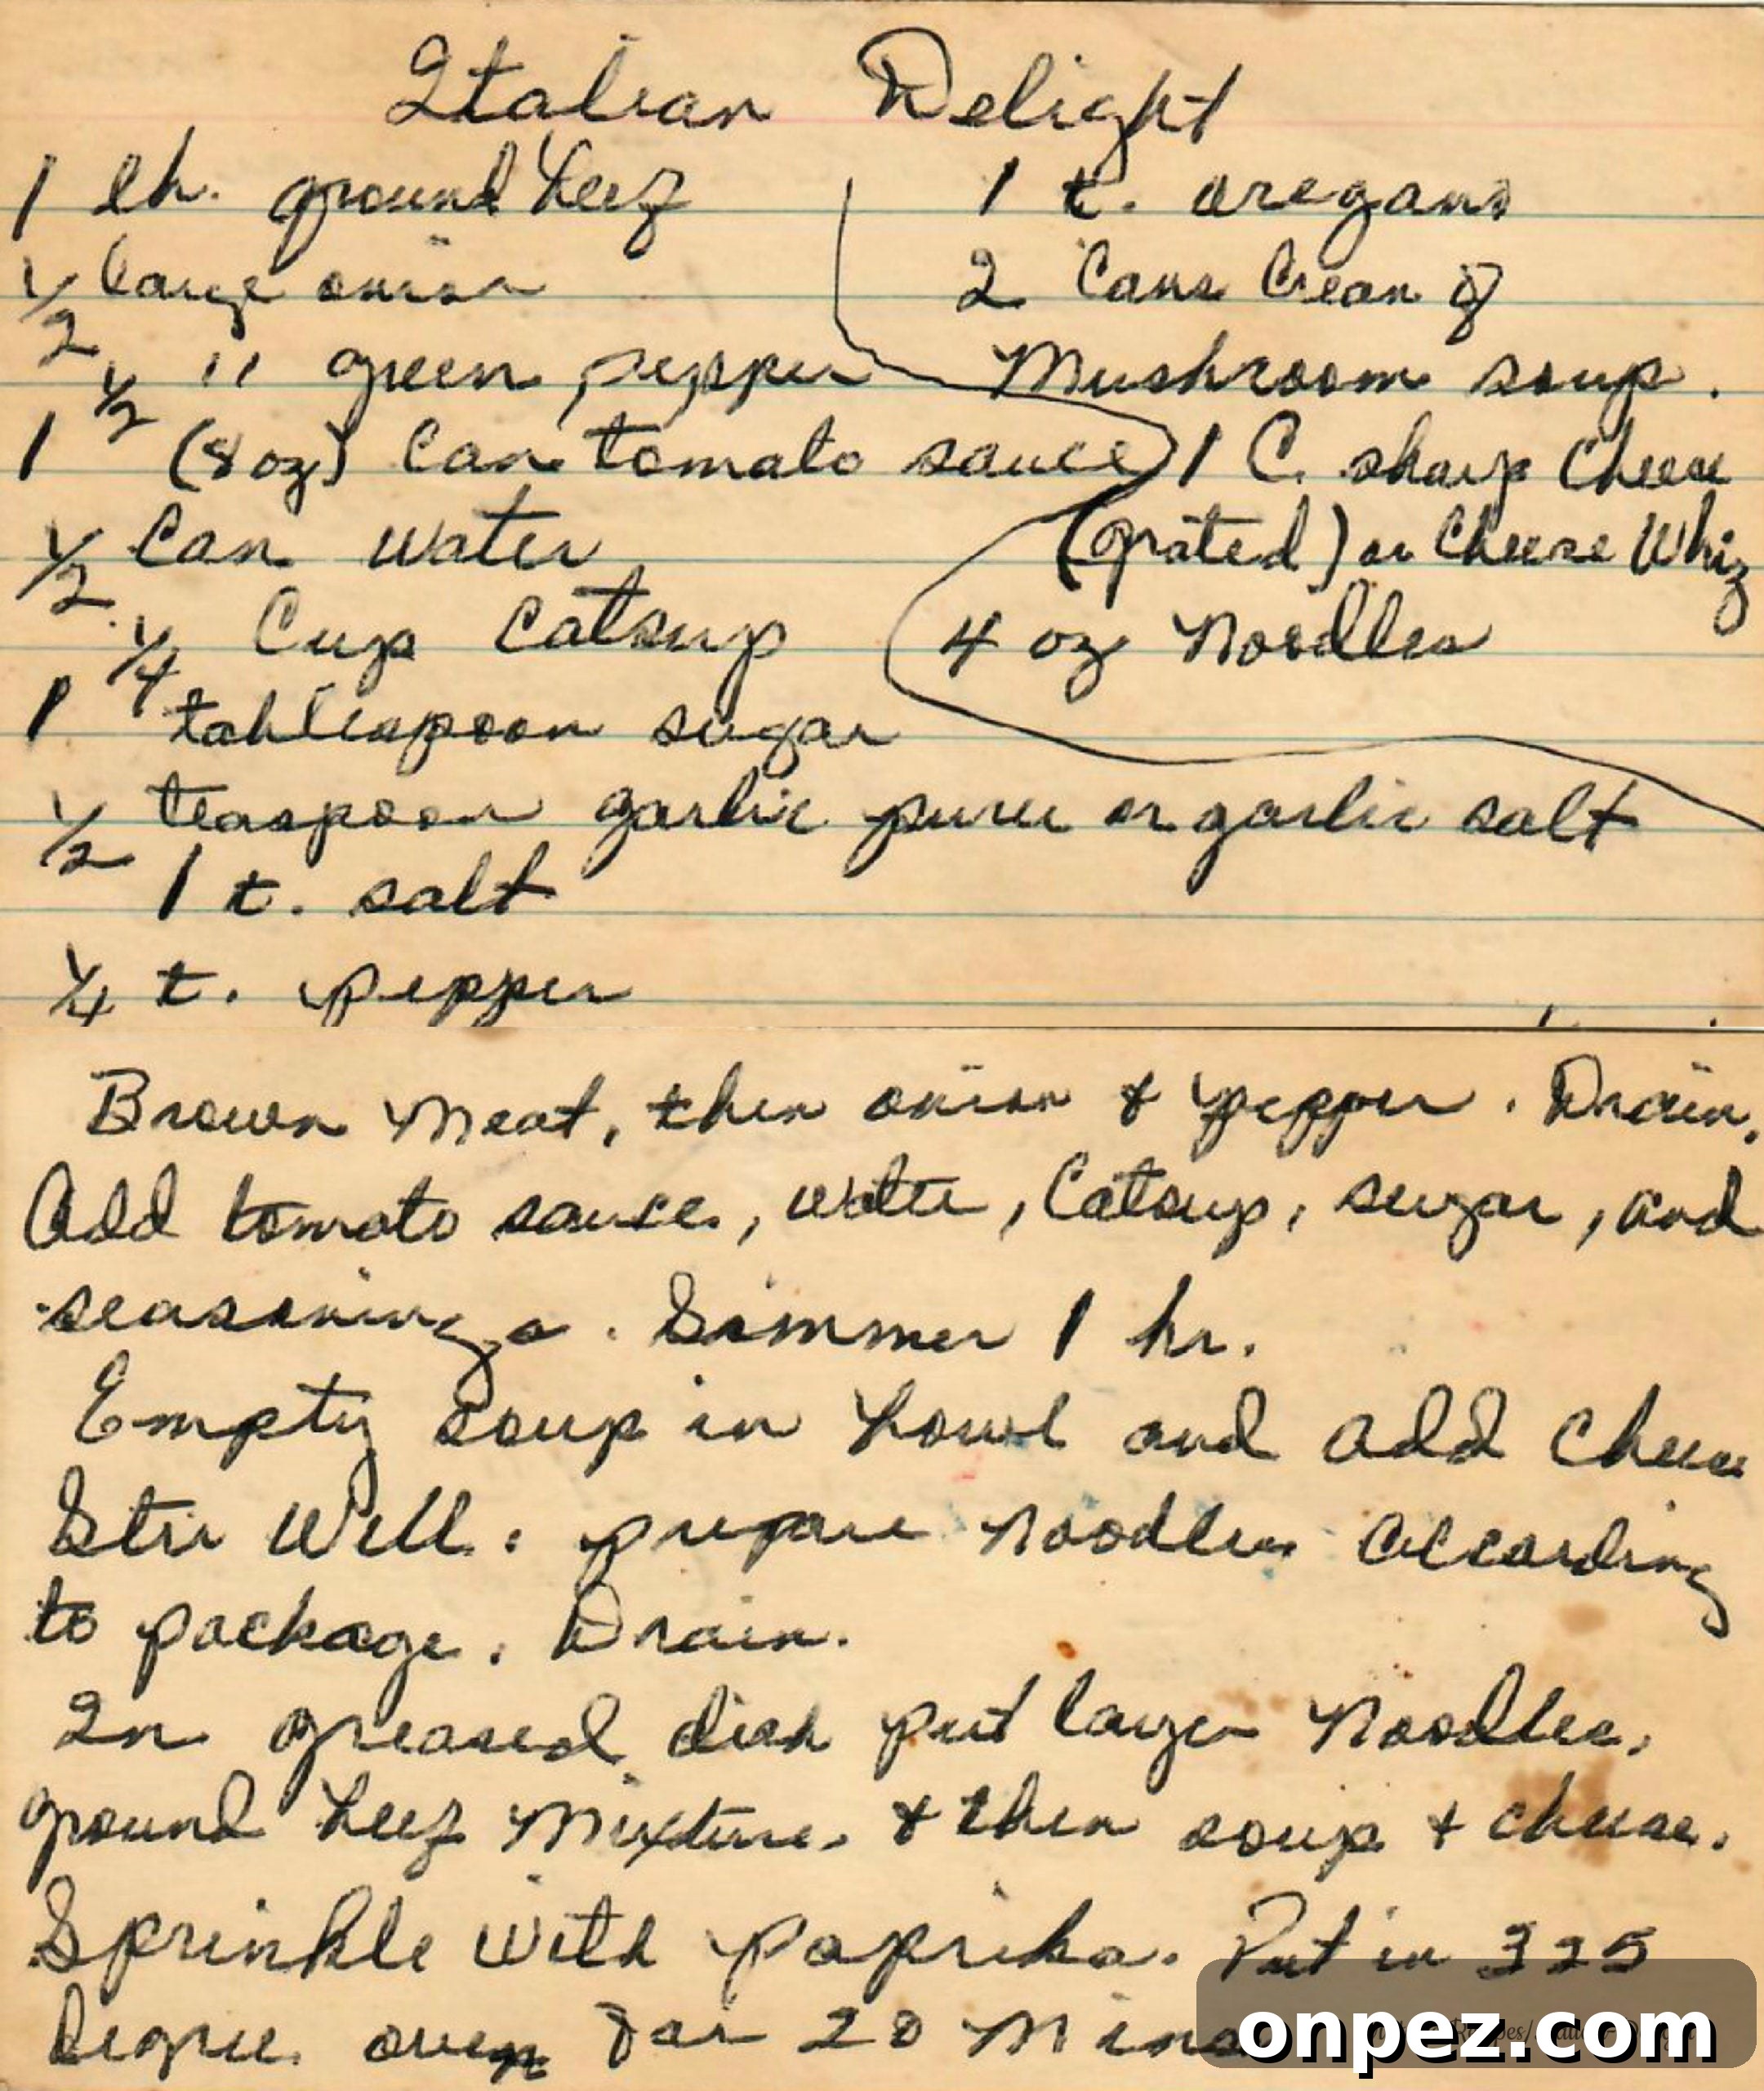 Italian Delight
1 lb. ground beef
1/2 large onion
1/2 " green pepper
1 (8 oz) can tomato sauce
1/2 Can water
1/4 Cup Catsup
1 tablespoon sugar
1/2 teaspoon garlic puree or garlic salt
1 t. salt
1/4 t. pepper
1 t. oregano
2 Cans Cream of
Mushroom soup.
1 C. sharp Cheese
(grated) or Cheese Whiz
4 oz Noodles
Brown Meat, then onion & pepper. Drain.
Add tomato sauce, water, Catsup, sugar, and
seasonings. Simmer 1 hr.
Empty soup in bowl and add Cheese
Stir Well. prepare Noodles according
to package. Drain.
In greased dish put layer Noodles,
ground beef Mixture, & then soup & cheese.
Sprinkle With Paprika. Put in 325
degree oven for 20 Mins
onpez.com